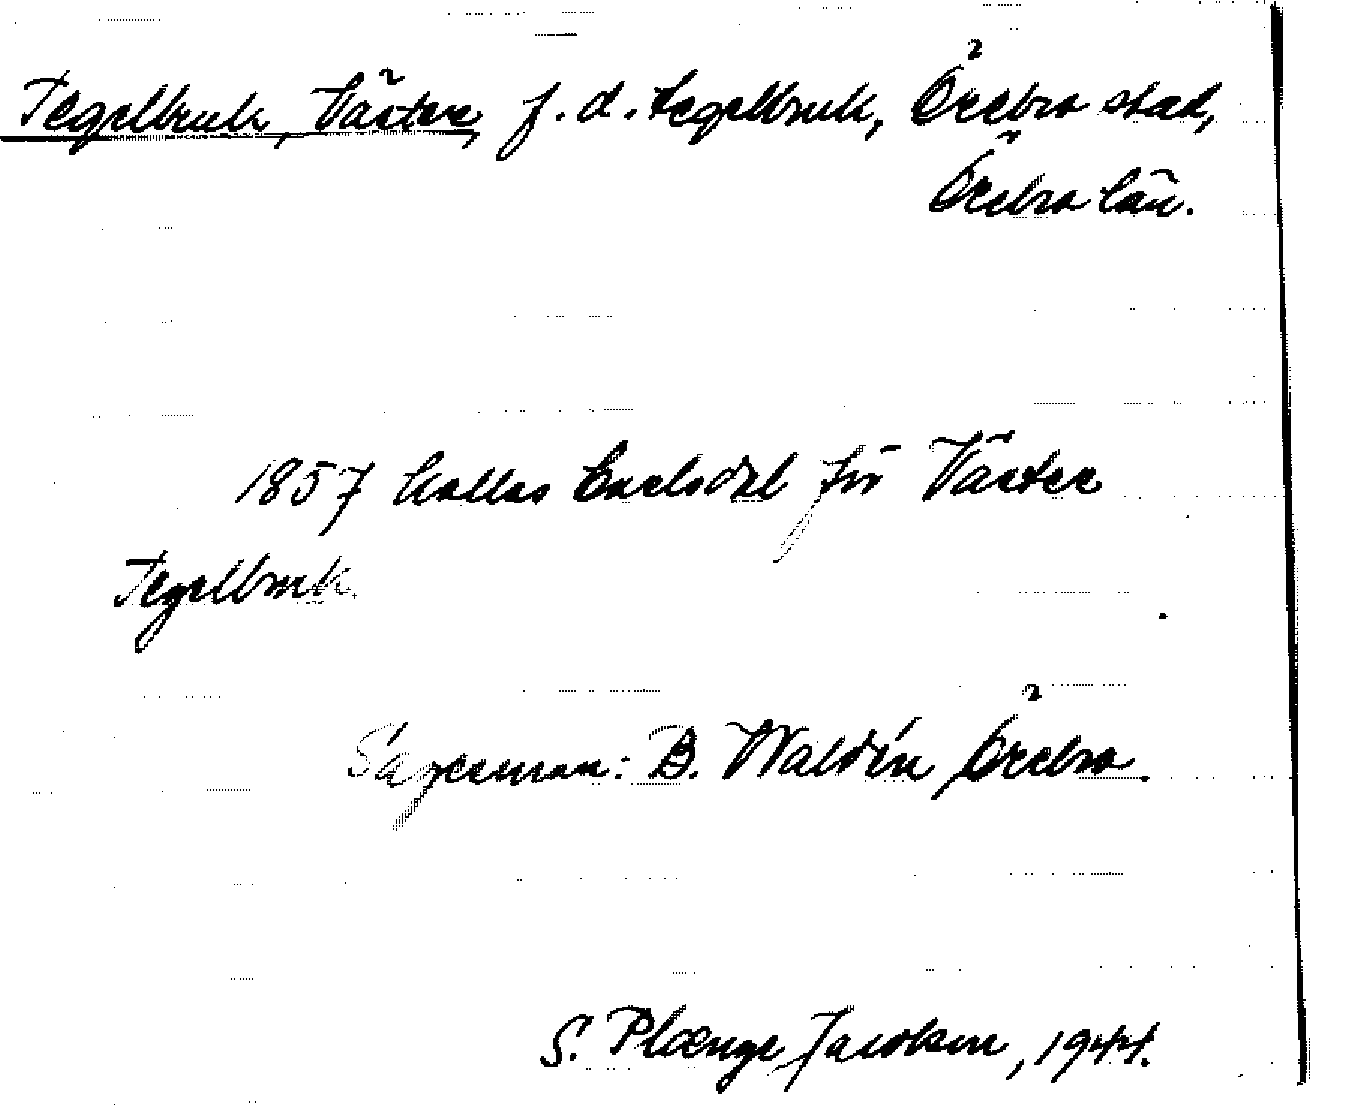 Tegelbruk, Väster, f.d. tegelbruk, Örebro stad,
Örebro län.
1857 kallas Carlsdal för Väster
Tegelbruk.
Sagesman: B. Waldén Örebro.
S. Plænge Jacobson, 1944.